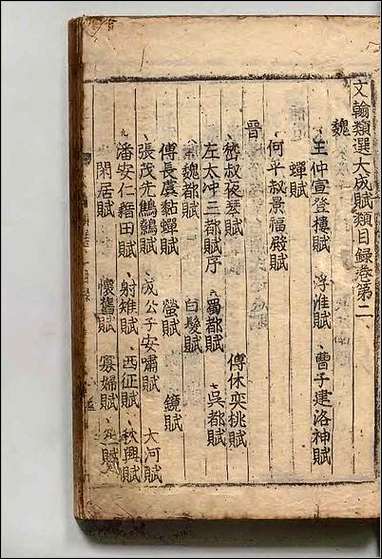 文翰類選大成賦類目錄卷第二
魏
王仲宣登樓賦 浮淮賦 曹子建洛神賦
蟬賦
何平叔景福殿賦
晉
嵇叔夜琴賦 傅休奕桃賦
左太冲三都賦序 蜀都賦 吳都賦
魏都賦 白髮賦
傅長虞黏蟬賦 螢賦 鏡賦
張茂先鷦鷯賦 成公子安嘯賦 大河賦
潘安仁藉田賦 射雉賦 西征賦 秋興賦
閑居賦 懷舊賦 寡婦賦 笙賦